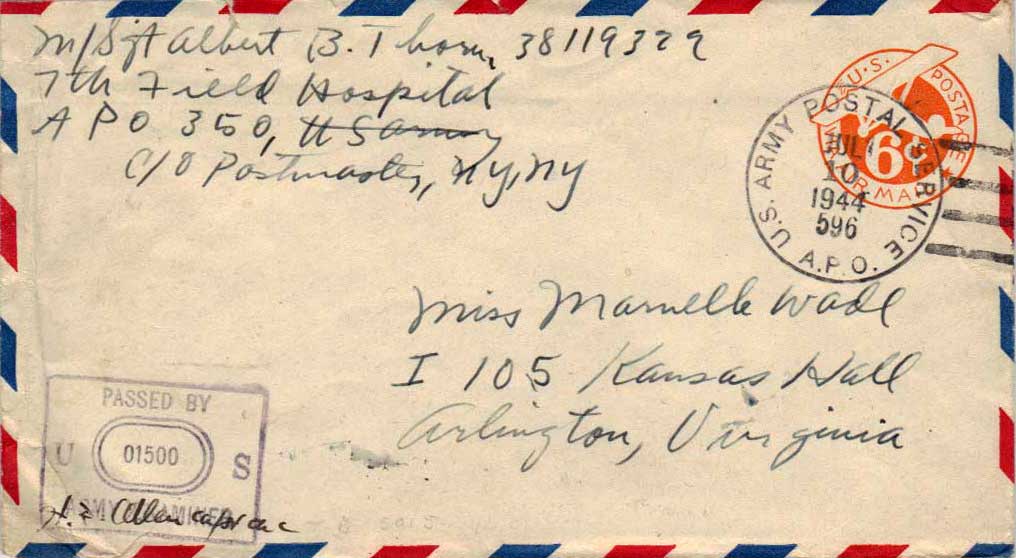 M/Sgt Albert B. Thorn, 38119329
7th Field Hospital
APO 350, US Army
c/o Postmaster, NY, NY
U.S. POSTAGE
6¢
VIA AIR MAIL
U.S. ARMY POSTAL SERVICE
JUL
10
1944
596
A.P.O.
Miss Marnelle Wade
I 105 Kansas Hall
Arlington, Virginia
PASSED BY
U 01500 S
ARMY EXAMINER